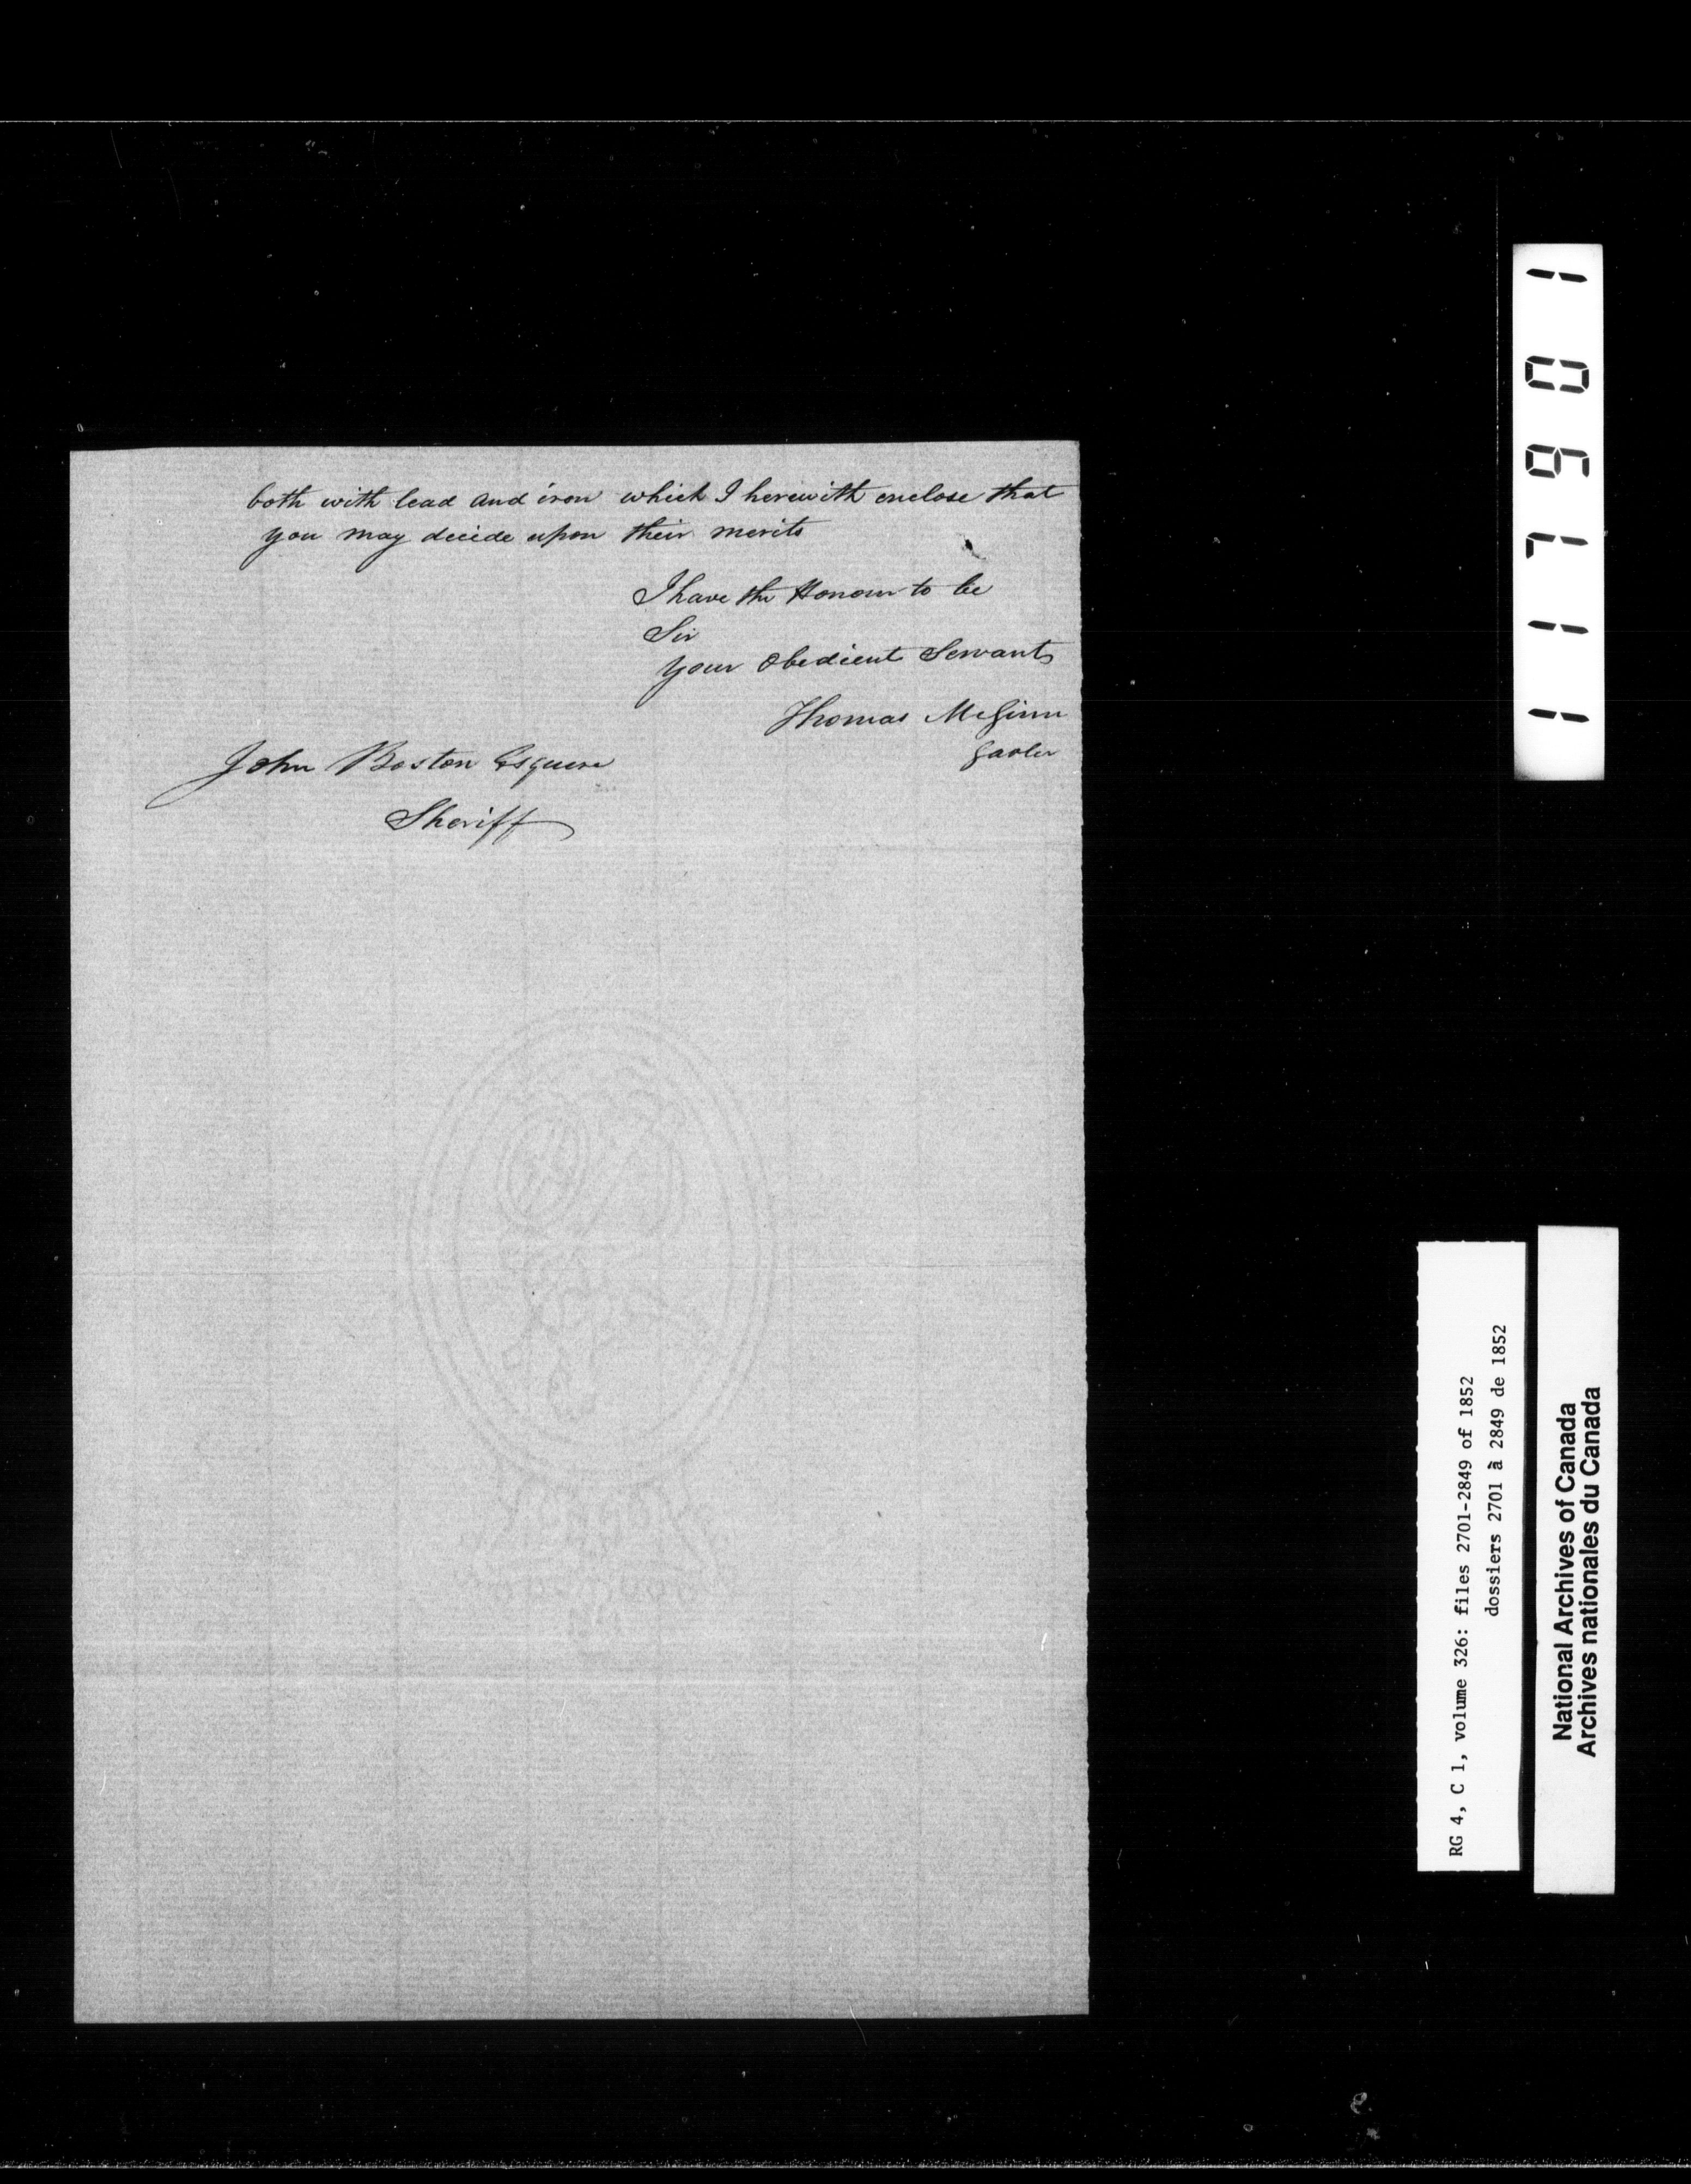 both with lead and iron which I herewith enclose that
you may decide upon their merits
I have the Honour to be
Sir
your Obedient Servant
Thomas McGinn
Gaoler
John Boston Esquire
Sheriff
117901
RG 4, C 1, volume 326: files 2701-2849 of 1852
dossiers 2701 à 2849 de 1852
National Archives of Canada
Archives nationales du Canada